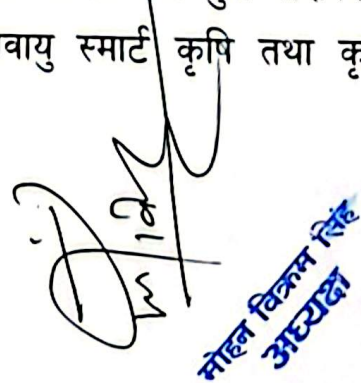 वायु स्मार्ट कृषि तथा कृ
मोहन विक्रम सिंह
अध्यक्ष